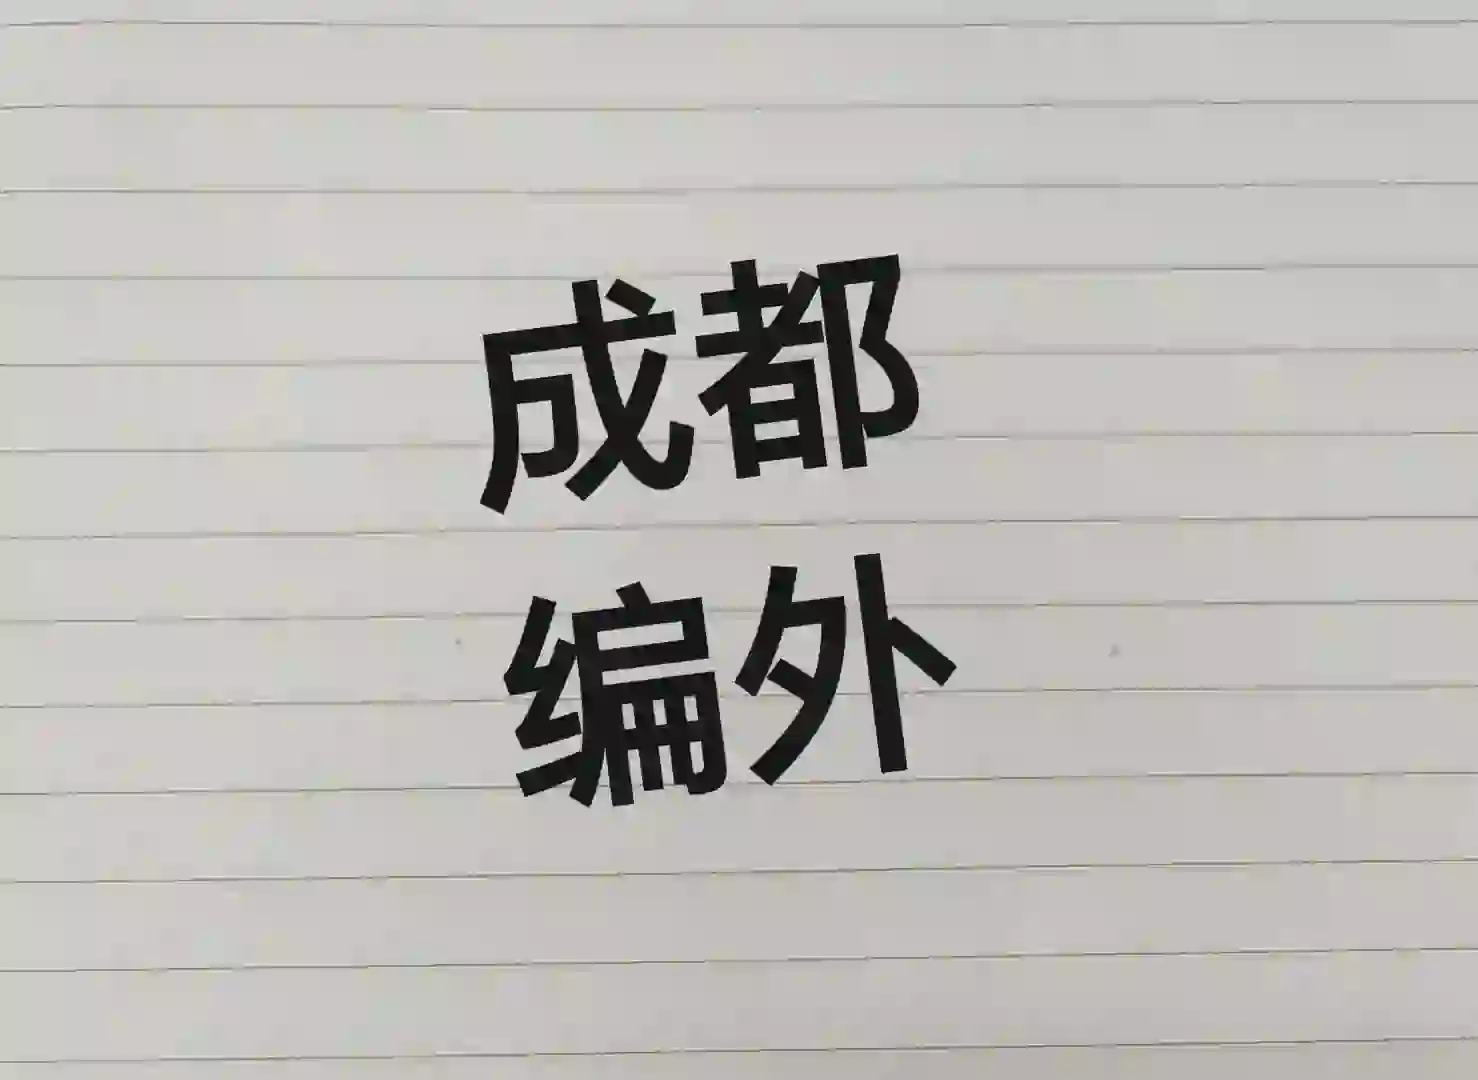 成都
编外